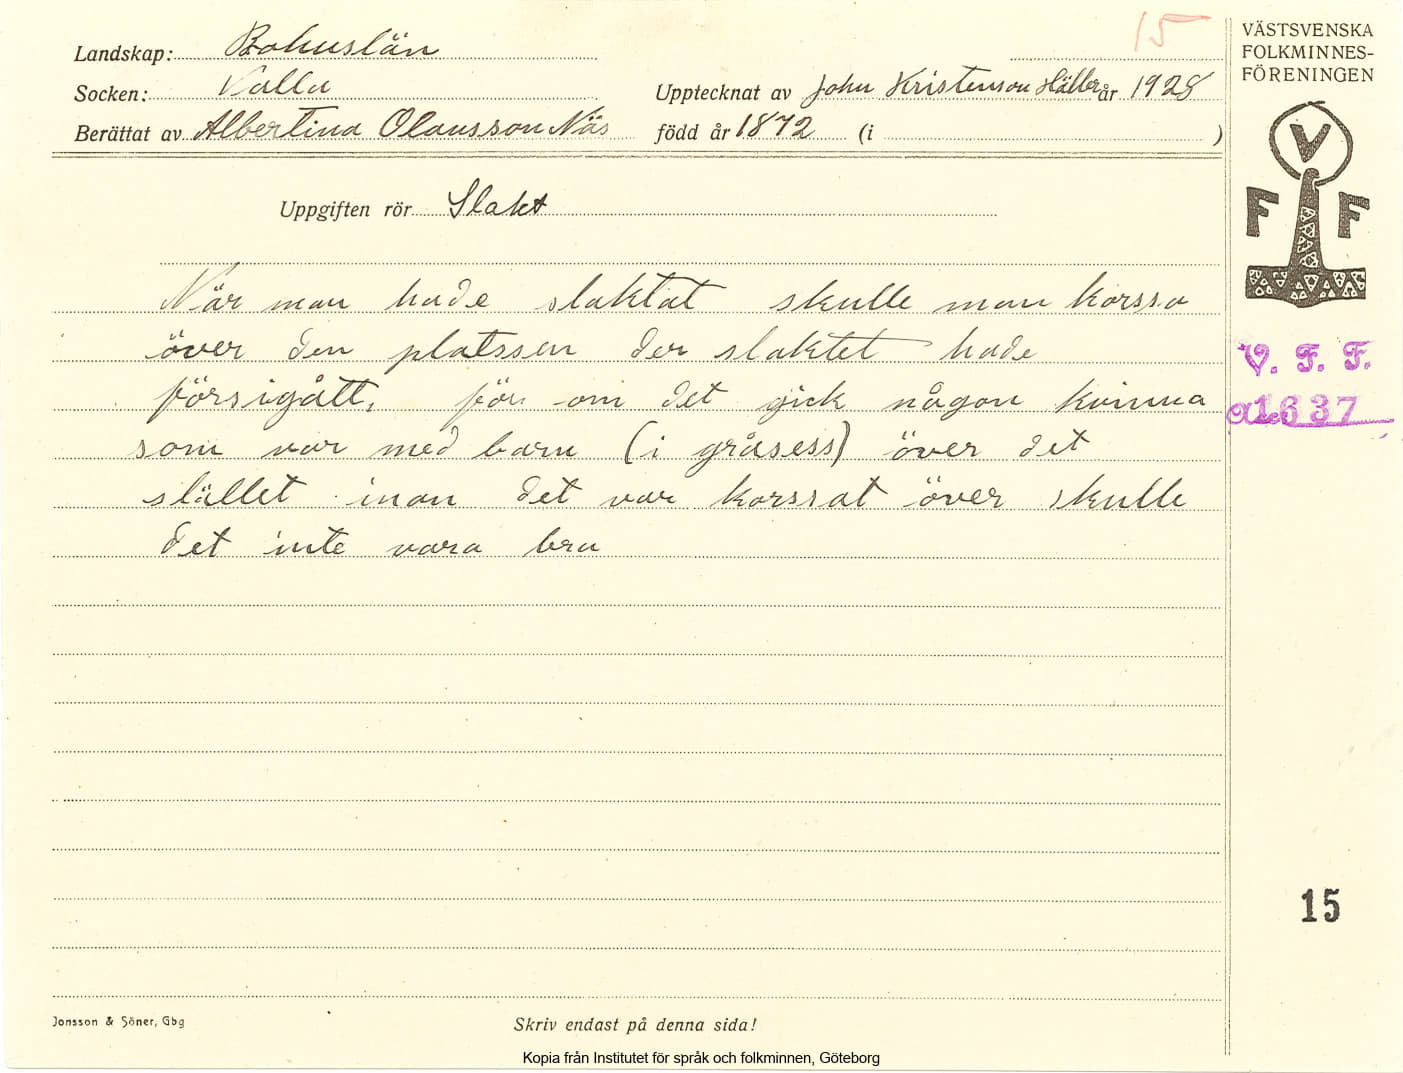 15
VÄSTSVENSKA
FOLKMINNES-
FÖRENINGEN
Landskap: Bohuslän
Socken: Valla
Upptecknat av John Kristenson Häller år 1928
Berättat av Albertina Olausson Näs född år 1872 (i )
V
F F
Uppgiften rör Slakt
När man hade slaktat skulle man korssa
över den platssen der slaktet hade
försigått, för om det gick någon kvinna
som var med barn (i gråsess) över det
stället inan det var korssat över skulle
det inte vara bra
V. F. F.
a1637
15
Jonsson & Söner, Gbg
Skriv endast på denna sida!
Kopia från Institutet för språk och folkminnen, Göteborg